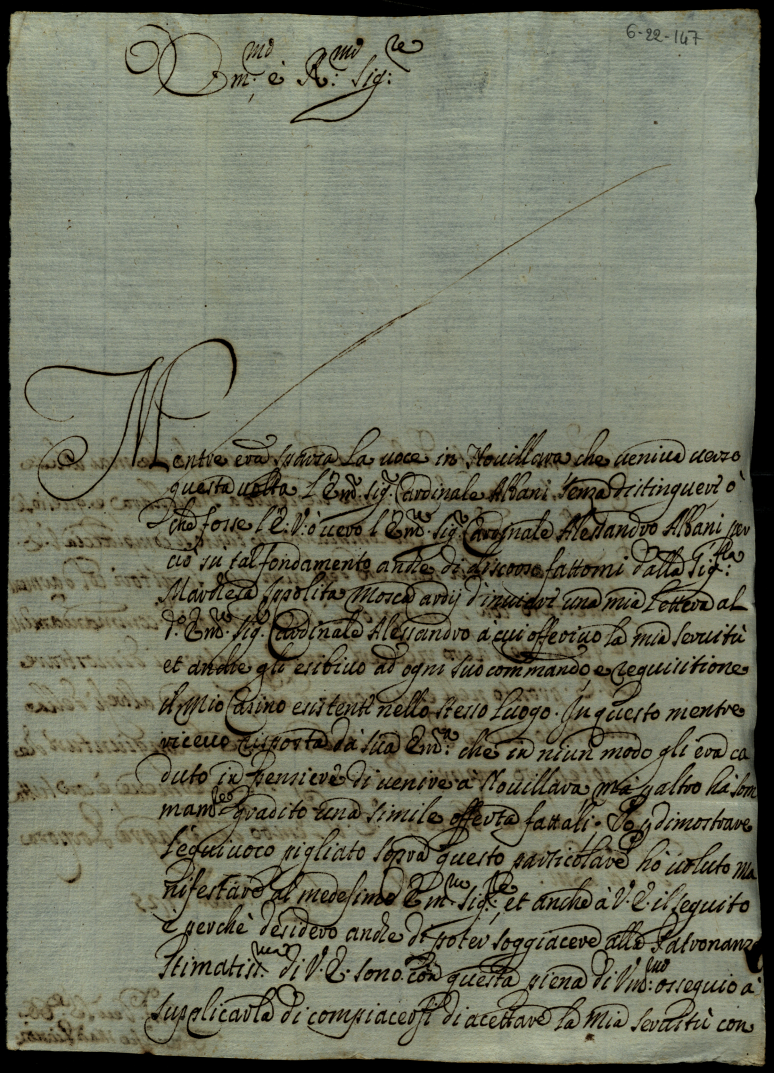 6-22-147
Em:mo è R:mo Sig:re
Mentre era sparsa la uoce in Nouillara che ueniua uerso
questa uolta l'Em.mo Sig.r Cardinale Albani senza distinguersi ò
che fosse l'E.V. ò uero l'Em.mo Sig.r Cardinale Alessandro Albani per
ciò su tal fondamento anche di discorso fattomi dalla Sig:ra
Marchesa Ippolita Mosca ardij d'inuiare una mia lettera al
d.o Em.mo Sig.r Cardinale Alessandro a cui offeriuo la mia seruitù
et anche gli esibiuo ad ogni suo commando e requisitione
il mio Casino esistente nello stesso luogo. In questo mentre
riceuo risposta da sua Em.za che in niun modo gli era ca
duto in pensiere di uenire à Nouillara, mà p altro hà som
mam.te gradito una simile offerta fattali. Io p dimostrare
l'equiuoco pigliato sopra questo particolare hò uoluto ma
nifestare al medesimo Em.mo Sig:re, et anche à V.E. il seguito
e perchè desidero anche di poter soggiacere alla Patronanza
Stimatiss:ma di V.E. sono con questa piena di Um:mo ossequio à
supplicarla di compiacersi di acettare la mia seruitù con